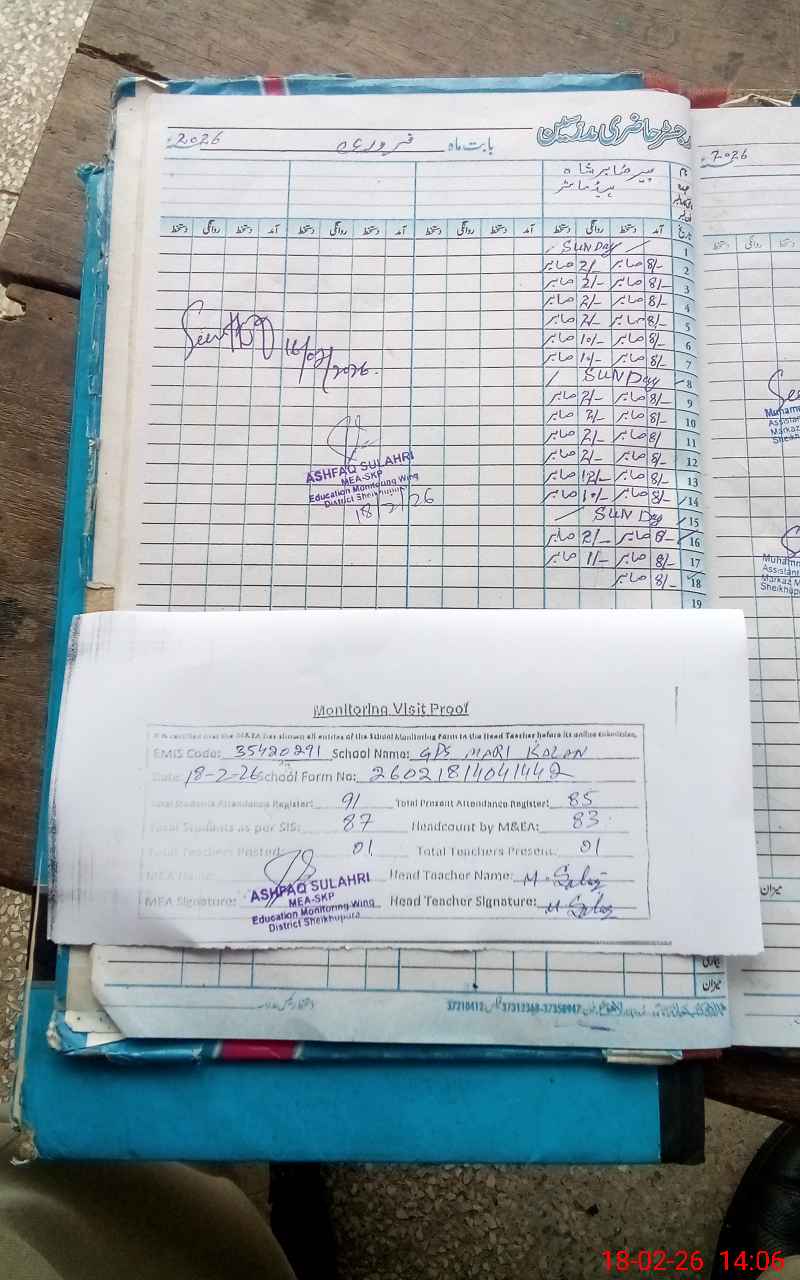 رجسٹر حاضری مدرسین
بابت ماہ فروری 2026
2026
پیر صابر شاہ
ہیڈ ماسٹر
تاریخ آمد دستخط روانگی دستخط آمد دستخط روانگی دستخط آمد دستخط روانگی دستخط آمد دستخط روانگی دستخط
1 SUNDAY
2 8/- صابر 2/- صابر
3 8/- صابر 2/- صابر
4 8/- صابر 2/- صابر
5 8/- صابر 2/- صابر
6 8/- صابر 10/- صابر
7 8/- صابر 10/- صابر
8 SUNDAY
9 8/- صابر 2/- صابر
10 8/- صابر 2/- صابر
11 8/ صابر 2/- صابر
12 8/- صابر 2/- صابر
13 8/- صابر 12/- صابر
14 8/- صابر 10/- صابر
15 SUNDAY
16 8/- صابر 2/- صابر
17 8/- صابر 11/- صابر
18 8/- صابر
19
Seen
16/02/2026.
ASHFAQ SULAHRI
MEA-SKP
Education Monitoring Wing
District Sheikhupura
18/2/26
Monitoring Visit Proof
It is certified that the M&EA has shown all entries of the School Monitoring Form to the Head Teacher before its online submission.
EMIS Code: 35420291 School Name: GPS MARI KALAN
Date: 18-2-26 School Form No: 26021814041442
Total Students Attendance Register: 91 Total Present Attendance Register: 85
Total Students as per SIS: 87 Headcount by M&EA: 83
Total Teachers Posted: 01 Total Teachers Present: 01
MEA Name: Head Teacher Name:
MEA Signature: Head Teacher Signature:
ASHFAQ SULAHRI
MEA-SKP
Education Monitoring Wing
District Sheikhupura
میزان
37210412 37313368-37358947
میزان
18-02-26 14:06